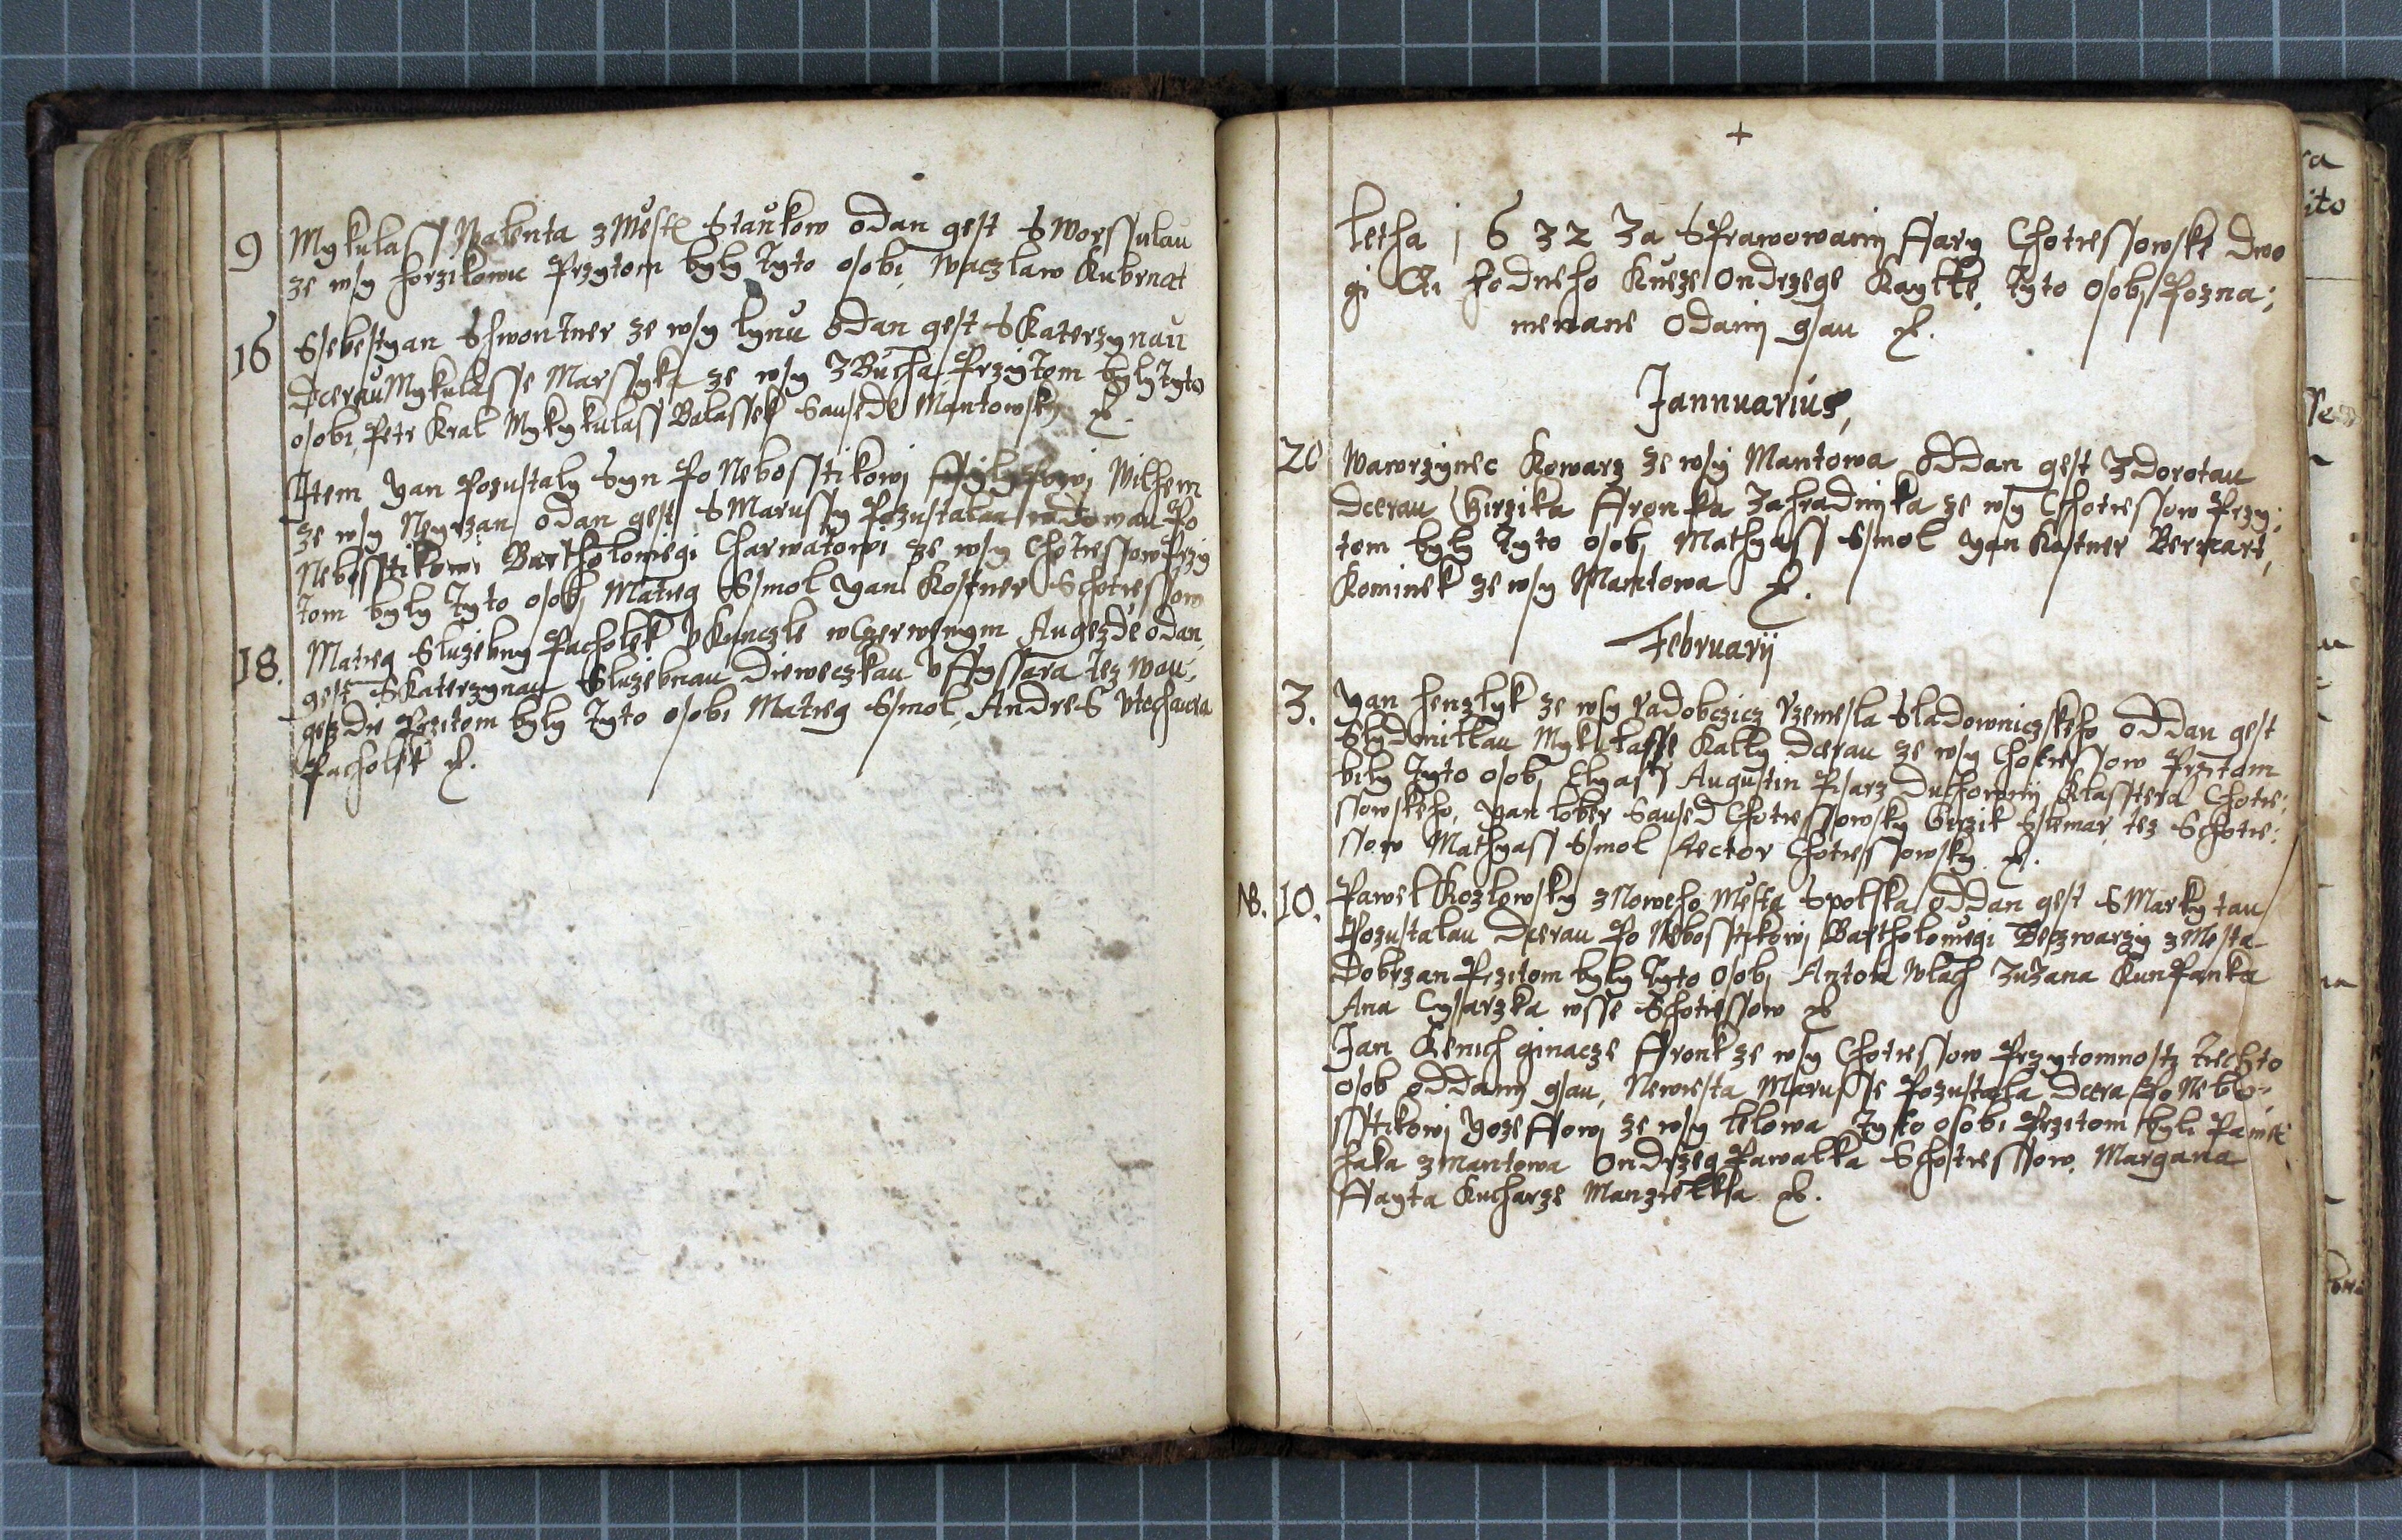 9 Mykulass Walenta z Mėste Stankow odan gest S Worssulau
ze wsy Horzikowic Przytom byly Tyto osobi, Waczlaw Kubrnat
16 Ssebestyan Schwontner ze wsy Lynu odan gest S Katerzynau
Dcerau Mykulasse Marssyka ze wsy Zbucha, Przytom byly Tyto
osobi, Petr Kral Mykykulass Balassek Sausede Mantowsky
Item Yan Pozustaly Syn Po Nebosstikowi Wilhem
ze wsy Neyrzan odan gest S Marussy Pozustalau wdowau Po
Nebosstikowi Bartholomiegi Charwatowi ze wsy Chotiessow Przy
Tom byly Tyto osobi Matieg Ssmol Yan Kostner S Chotiessow
18. Matieg Sluzebny Pacholek v Kunczle w Czerwenym Augezde odan
gest S Katerzynau Sluzebnau Dieweczkau v Ffyssara tez w Au:
gezde Przitom byly Tyto osobi Matieg Ssmol, Andres
Pacholek
+
Letha 1632 Za Sprawowany Ffary Chotiessowske Dwo
gi Cti hodneho Knėze Ondrzege Kaytke, Tyto osobi Pozna:
menane Odany gsau
Jannuarius,
20 Wawrzynec Kowarz ze wsy Mantowa oddan gest Z Dorotau
Dcerau Girzika Ffronka Zahradnyka ze wsy Chotiessow Przy:
tom byly Tyto osobi Mathyass Ssmol Yan Kastner Bernart,
Kominek ze wsy Mantowa
Februarij
3. Yan Henzlyk ze wsy Radobczicz Rzemesla Sladowniczkeho oddan gest
S Lydmillau Mykulasse Kalty Dcerau ze wsy Chotiessow Przitom
bily Tyto osobi Elyass Augustin Pisarz Duchowny Klasstera Chotie:
ssowskeho, Yan Lober Saused Chotiessowsky Girzik Sslemar tez S Chotie:
ssow Mathyass Ssmol Rector Chotiessowsky
NB. 10. Pawel Kozlowsky z Noweho Mėsta S Polska oddan gest S Markytau
Pozustalau Dcerau Po Nebosstikowi Bartholomėgi z Mėsta
Dobrzan Przitom byly Tyto osobi Anton Wlach Zuzana Kunpanka
Ana Cysarzka wsse S Chotiessow
Jan Henich ginacze Ffronk ze wsy Chotiessow Przytomnosti Tiechto
osob oddany gsau, Newiesta Marusse Pozustala Dcera Po Nebo-
sstikowi Yozeffowi ze wsy Lelowa Tyto osobi Przitom byli Pawel
Haka z Mantowa Ondrzeg Pawalka S Chotiessow, Margana
Ffayta Kucharze Manzielka